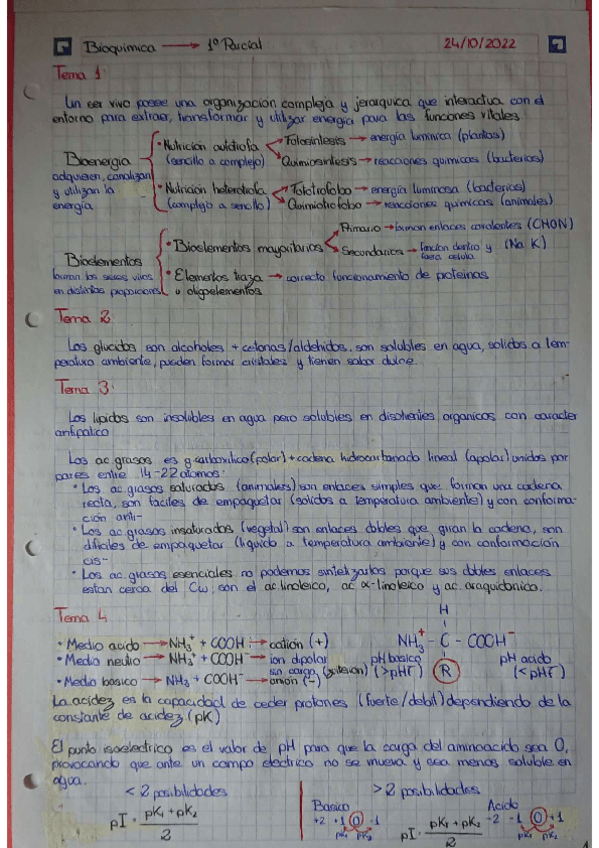 Bioquimica → 1º Parcial 24/10/2022
Tema 1:
Un ser vivo posee una organización compleja y jerarquica que interactua con el
entorno para extraer, transformar y utilizar energía para las funciones vitales
Bioenergia
adquieren, canalizan
y utilizan la
energía
• Nutrición autótrofa
(sencillo a complejo)
Fotosíntesis → energía luminica (plantas)
Quimiosintesis → reacciones quimicas (bacterias)
• Nutrición heterotrofa
(complejo a sencillo)
Fototrofobo → energía luminosa (bacterias)
Quimiotrofobo → reacciones químicas (animales)
Bioelementos
forman los seres vivos
en distintas proporciones
• Bioelementos mayoritarios
Primario → forman enlaces covalentes (CHON)
Secundarios → función dentro y fuera celula (Na K)
• Elementos traza
u oligoelementos
→ correcto funcionamento de proteinas
Tema 2
Los glucidos son alcoholes + cetonas/aldehidos, son solubles en agua, solidos a tem-
peratura ambiente, pueden formar cristales y tienen sabor dulce.
Tema 3:
Los lipidos son insolubles en agua pero solubles en disolventes organicos con caracter
antipatico
Los ac.grasos es g.carboxilico (polar) + cadena hidrocarbonada lineal (apolar) unidos por
pares entre 14-22 atomos:
• Los ac.grasos saturados (animales) son enlaces simples que forman una cadena
recta, son faciles de empaquetar (solidos a temperatura ambiente) y con conforma-
ción anti-
• Los ac.grasos insaturados (vegetal) son enlaces dobles que giran la cadena, son
dificiles de empaquetar (liquido a temperatura ambiente) y con conformación
cis-
• Los ac.grasos esenciales no podemos sintetizarlos porque sus dobles enlaces
estan cerca del Cω, son el ac.linoleico, ac α-linoleico y ac.araquidonico.
Tema 4
• Medio acido → NH₃⁺ + COOH → catión (+)
• Medio neutro → NH₃⁺ + COOH⁻ → ion dipolar
sin carga (zwiterion)
• Medio basico → NH₃ + COOH⁻ → anión (-)
H
NH₃⁺ - C - COOH⁻
R
pH basico
(>pHF)
pH acido
(<pHF)
La acidez es la capacidad de ceder protones (fuerte/debil) dependiendo de la
constante de acidez (pK)
El punto isoelectrico es el valor de pH para que la carga del aminoacido sea 0,
provocando que ante un campo electrico no se mueva y sea menos soluble en
agua.
< 2 posibilidades
pI = pK₁ + pK₂ / 2
> 2 posibilidades
Basico
+2 +1 0 -1
pK₁ pK₂
pI = pK₁ + pK₂ / 2
Acido
-2 -1 0 +1
pK₂ pK₁